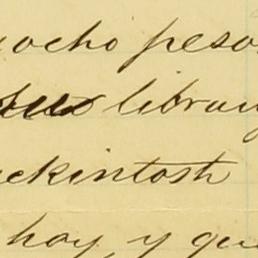 ocho peso
libran
ckintosh
hay, y que